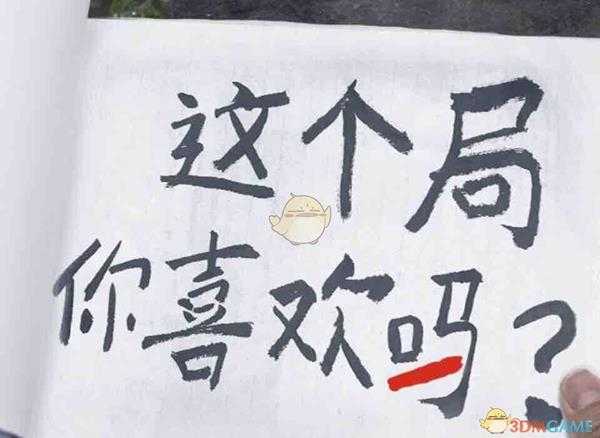 这个局
你喜欢吗?
3DMGAME